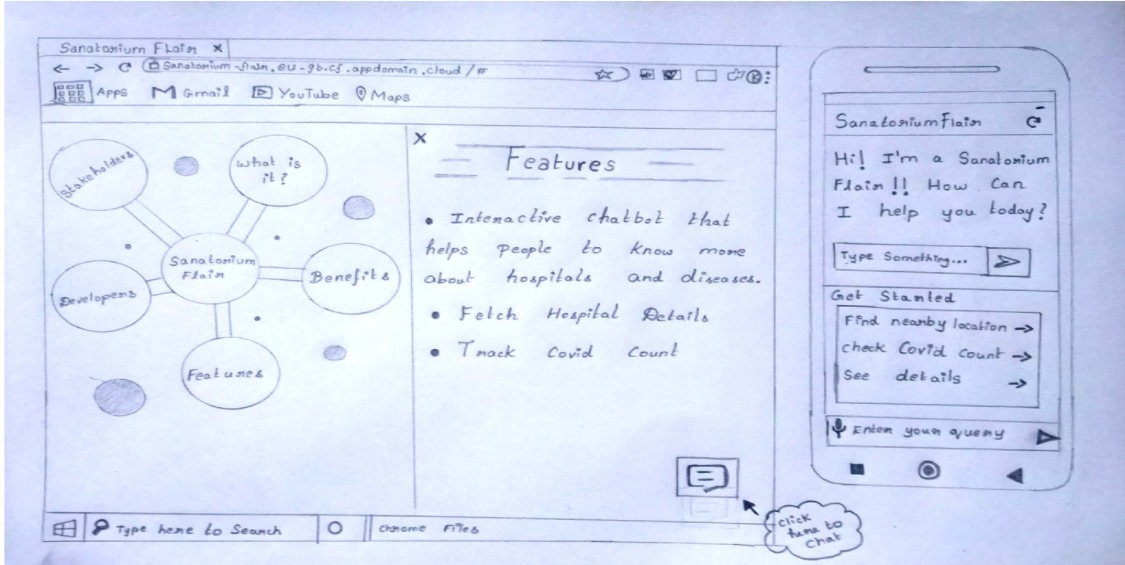 Sanatorium Flair X
Sanatorium-flair.eu-gb.cf.appdomain.cloud/#
Apps M Gmail YouTube Maps
Stakeholders
What is
it?
Sanatorium
Flair
Developers
Benefits
Features
X
Features
• Interactive chatbot that
helps people to know more
about hospitals and diseases.
• Fetch Hospital Details
• Track Covid Count
Click
here to
chat
Type here to Search
chrome Files
Sanatorium Flair
Hi! I'm a Sanatorium
Flair!! How Can
I help you today?
Type Something...
Get Started
Find nearby location →
check Covid count →
See details →
Enter your query